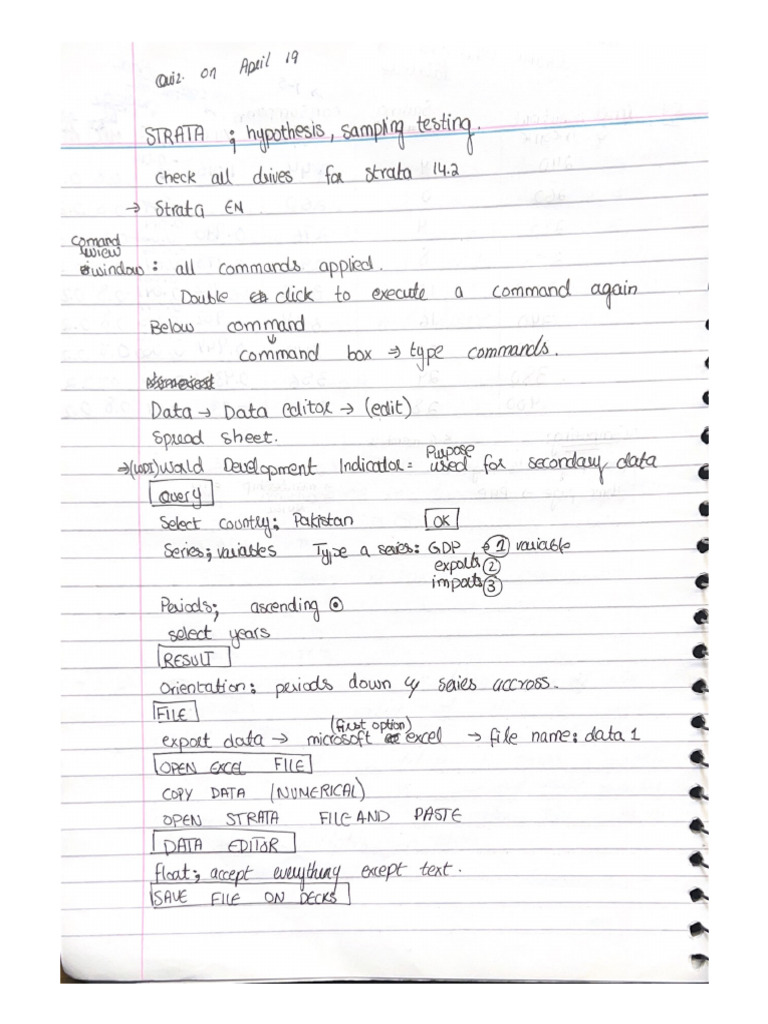 Quiz on April 19
STRATA ; hypothesis, sampling testing.
check all drives for strata 14.2
→ Strata EN
Comand
view
window : all commands applied.
Double click to execute a command again
Below command
↓
command box → type commands.
Data → Data editor → (edit)
Spread sheet.
→ (WDI) World Development Indicator = Purpose used for secondary data
Query
Select country; Pakistan OK
Series; variables Type a series: GDP → 1 variable
exports 2
imports 3
Periods; ascending
select years
RESULT
Orientation; periods down & series accross.
FILE
(first option)
export data → microsoft excel → file name: data 1
OPEN EXCEL FILE
COPY DATA (NUMERICAL)
OPEN STRATA FILE AND PASTE
DATA EDITOR
float; accept everything except text.
SAVE FILE ON DECKS